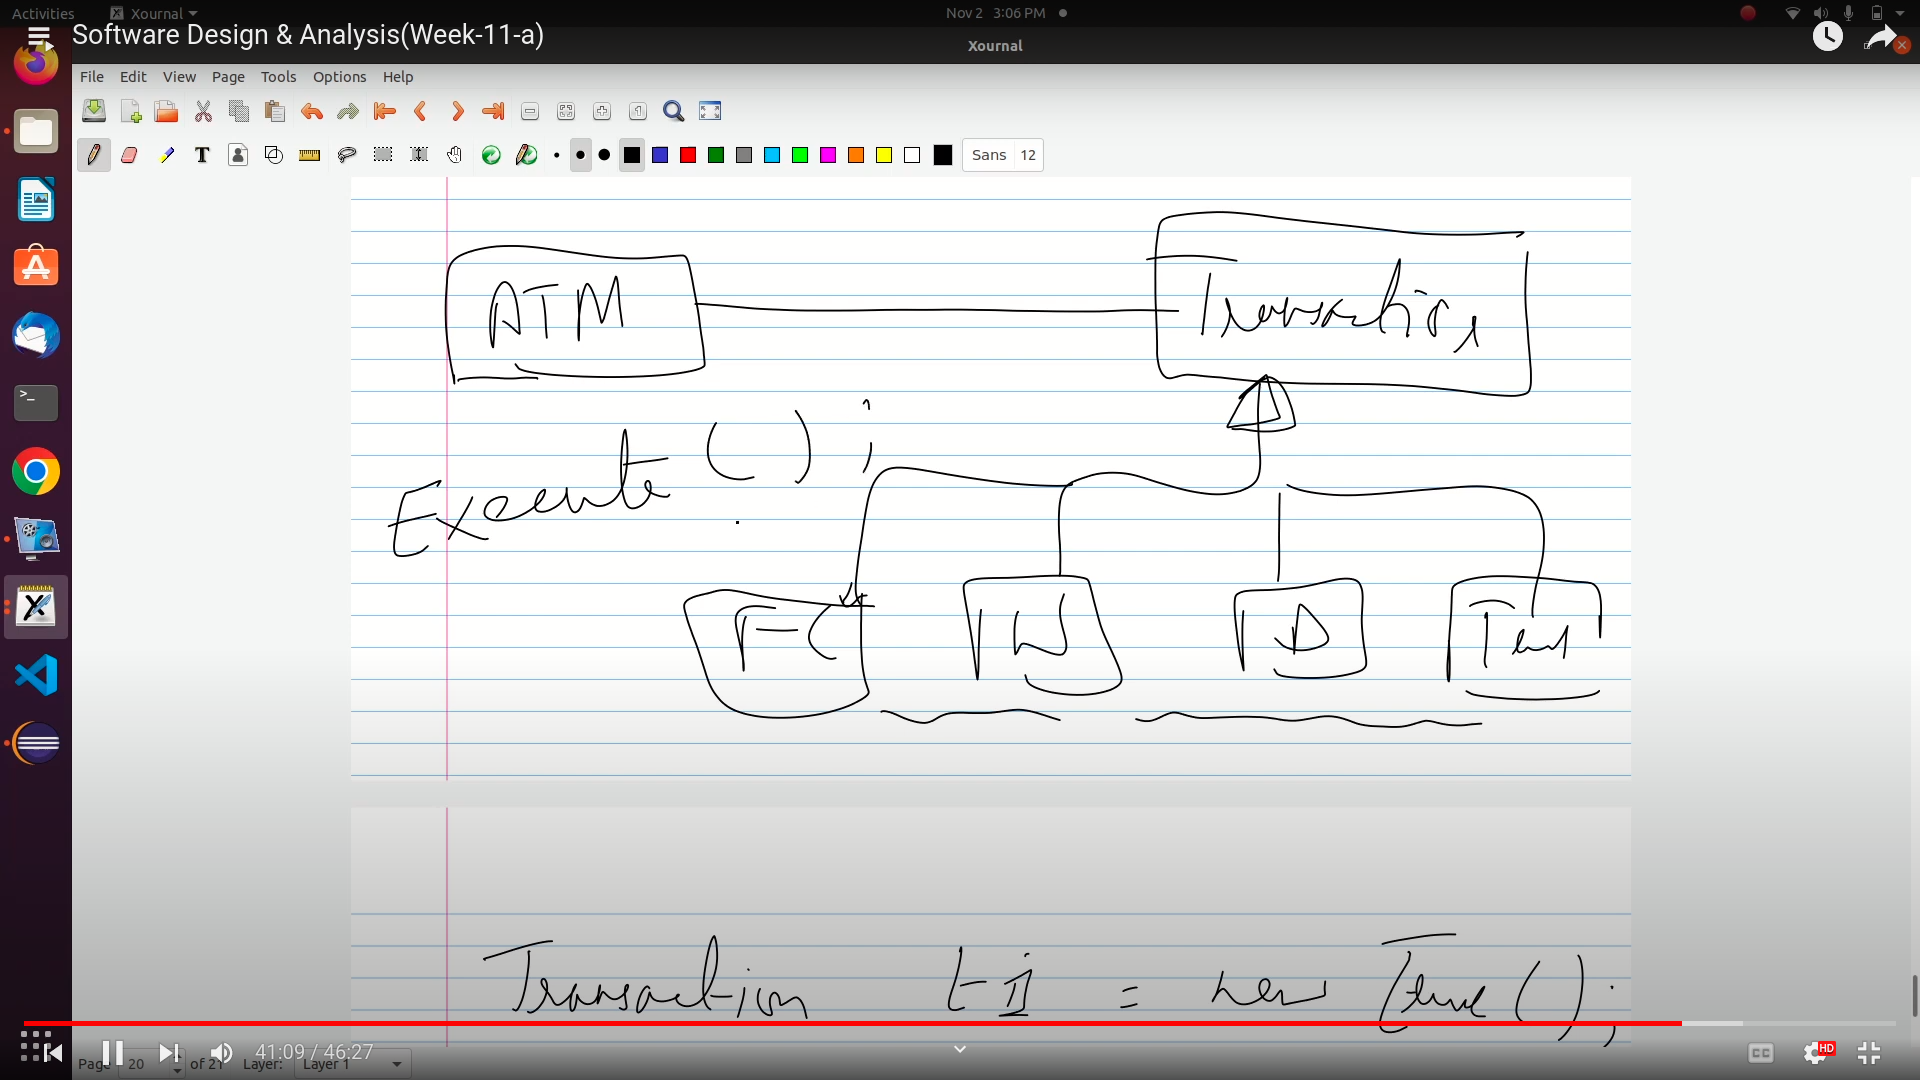 Activities Xournal Nov 2 3:06 PM
Software Design & Analysis(Week-11-a)
Xournal
File Edit View Page Tools Options Help
T Sans 12
ATM Transaction
Execute ( ) ;
FC W D
Transaction = new ( ) ;
41:09 / 46:27 CC HD
Page 20 of 21 Layer: Layer 1